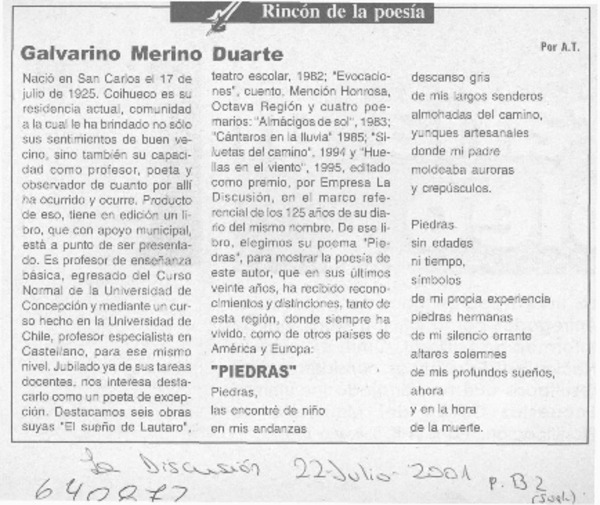 Rincón de la poesía
Galvarino Merino Duarte
Por A.T.
Nació en San Carlos el 17 de
julio de 1925. Coihueco es su
residencia actual, comunidad
a la cual le ha brindado no sólo
sus sentimientos de buen ve-
cino, sino también su capaci-
dad como profesor, poeta y
observador de cuanto por allí
ha ocurrido y ocurre. Producto
de eso, tiene en edición un li-
bro, que con apoyo municipal,
está a punto de ser presenta-
do. Es profesor de enseñanza
básica, egresado del Curso
Normal de la Universidad de
Concepción y mediante un cur-
so hecho en la Universidad de
Chile, profesor especialista en
Castellano, para ese mismo
nivel. Jubilado ya de sus tareas
docentes, nos interesa desta-
carlo como un poeta de excep-
ción. Destacamos seis obras
suyas "El sueño de Lautaro",
teatro escolar, 1982; "Evocacio-
nes", cuento, Mención Honrosa,
Octava Región y cuatro poe-
marios: "Almácigos de sol", 1983;
"Cántaros en la lluvia" 1985; "Si-
luetas del camino", 1994 y "Hue-
llas en el viento", 1995, editado
como premio, por Empresa La
Discusión, en el marco refe-
rencial de los 125 años de su dia-
rio del mismo nombre. De ese li-
bro, elegimos su poema "Pie-
dras", para mostrar la poesía de
este autor, que en sus últimos
veinte años, ha recibido recono-
cimientos y distinciones, tanto de
esta región, donde siempre ha
vivido, como de otros países de
América y Europa:
"PIEDRAS"
Piedras,
las encontré de niño
en mis andanzas
descanso gris
de mis largos senderos
almohadas del camino,
yunques artesanales
donde mi padre
moldeaba auroras
y crepúsculos.
Piedras
sin edades
ni tiempo,
símbolos
de mi propia experiencia
piedras hermanas
de mi silencio errante
altares solemnes
de mis profundos sueños,
ahora
y en la hora
de la muerte.
La Discusión 22-Julio-2001 p. B2
640872